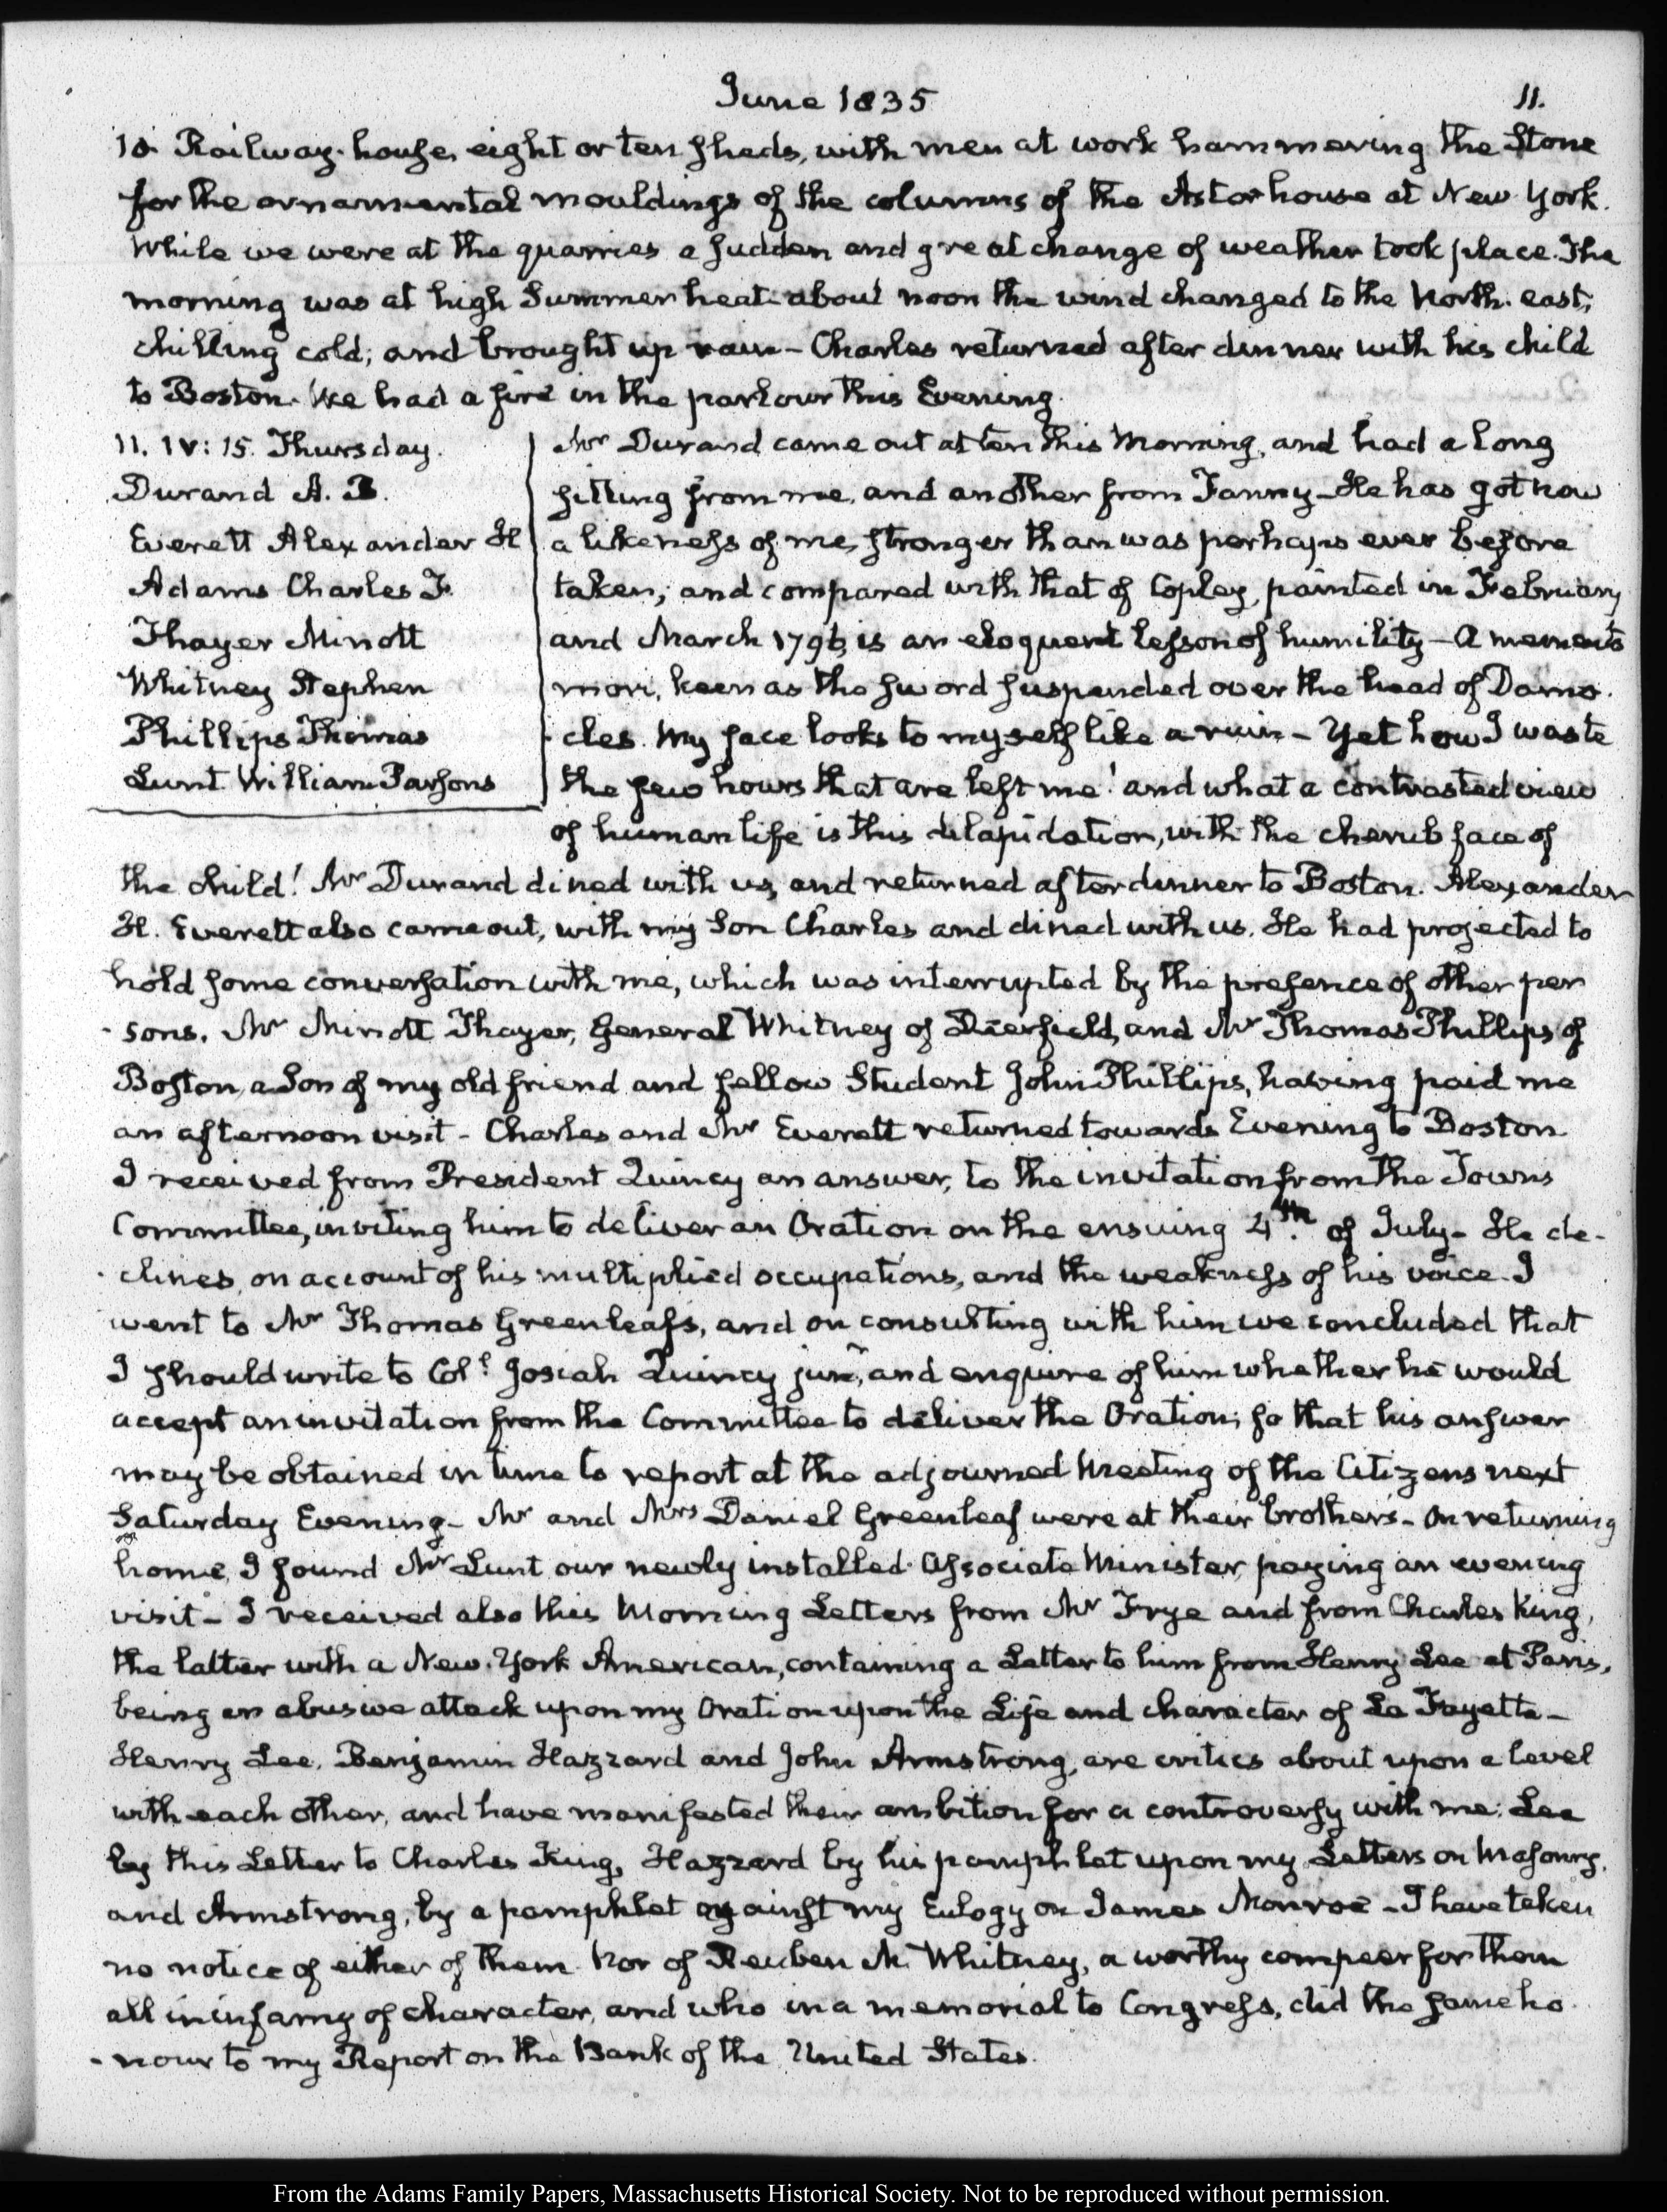 June 1835
11.
10. Railway-house, eight or ten sheds, with men at work hammering the Stone
for the ornamental mouldings of the columns of the Astor house at New York.
While we were at the quarries a sudden and great change of weather took place. The
morning was at high Summer heat about noon the wind changed to the North-east,
chilling cold; and brought up rain - Charles returned after dinner with his child
to Boston. We had a fire in the parlour this Evening.
11. IV: 15. Thursday.
Durand A. B.
Everett Alexander H
Adams Charles F.
Thayer Minott
Whitney Stephen
Phillips Thomas
Lunt William Parsons
Mr Durand came out at ten this Morning, and had a long
sitting from me, and another from Fanny - He has got now
a likeness of me, stronger than was perhaps ever before
taken; and compared with that of Copley, painted in February
and March 1796, is an eloquent lesson of humility - A memento
mori, keen as the sword suspended over the head of Damo-
-cles. My face looks to myself like a ruin - Yet how I waste
the few hours that are left me! and what a contrasted view
of human life is this dilapidation, with the cherub face of
the child! Mr Durand dined with us, and returned after dinner to Boston. Alexander
H. Everett also came out, with my Son Charles and dined with us. He had projected to
hold some conversation with me, which was interrupted by the presence of other per
-sons. Mr Minott Thayer, General Whitney of Deerfield, and Mr Thomas Phillips of
Boston, a Son of my old friend and fellow Student John Phillips, having paid me
an afternoon visit - Charles and Mr Everett returned towards Evening to Boston
I received from President Quincy an answer, to the invitation from the Towns
Committee, inviting him to deliver an Oration on the ensuing 4th. of July - He de-
-clines, on account of his multiplied occupations, and the weakness of his voice. I
went to Mr Thomas Greenleafs, and on consulting with him we concluded that
I should write to Coll. Josiah Quincy junr, and enquire of him whether he would
accept an invitation from the Committee to deliver the Oration; so that his answer
may be obtained in time to report at the adjourned Meeting of the Citizens next
Saturday Evening - Mr and Mrs Daniel Greenleaf were at their brother's - On returning
home, I found Mr Lunt our newly installed Associate Minister, paying an evening
visit - I received also this Morning Letters from Mr Frye and from Charles King,
the latter with a New-York American, containing a Letter to him from Henry Lee at Paris,
being an abusive attack upon my Oration upon the Life and character of La Fayette -
Henry Lee, Benjamin Hazzard and John Armstrong, are critics about upon a level
with each other, and have manifested their ambition for a controversy with me: Lee
by this Letter to Charles King, Hazzard by his pamphlet upon my Letters on Masonry,
and Armstrong, by a pamphlet against my Eulogy on James Monroe - I have taken
no notice of either of them. Nor of Reuben M. Whitney, a worthy compeer for them
all in infamy of character, and who in a memorial to Congress, did the same ho-
-nour to my Report on the Bank of the United States.
From the Adams Family Papers, Massachusetts Historical Society. Not to be reproduced without permission.